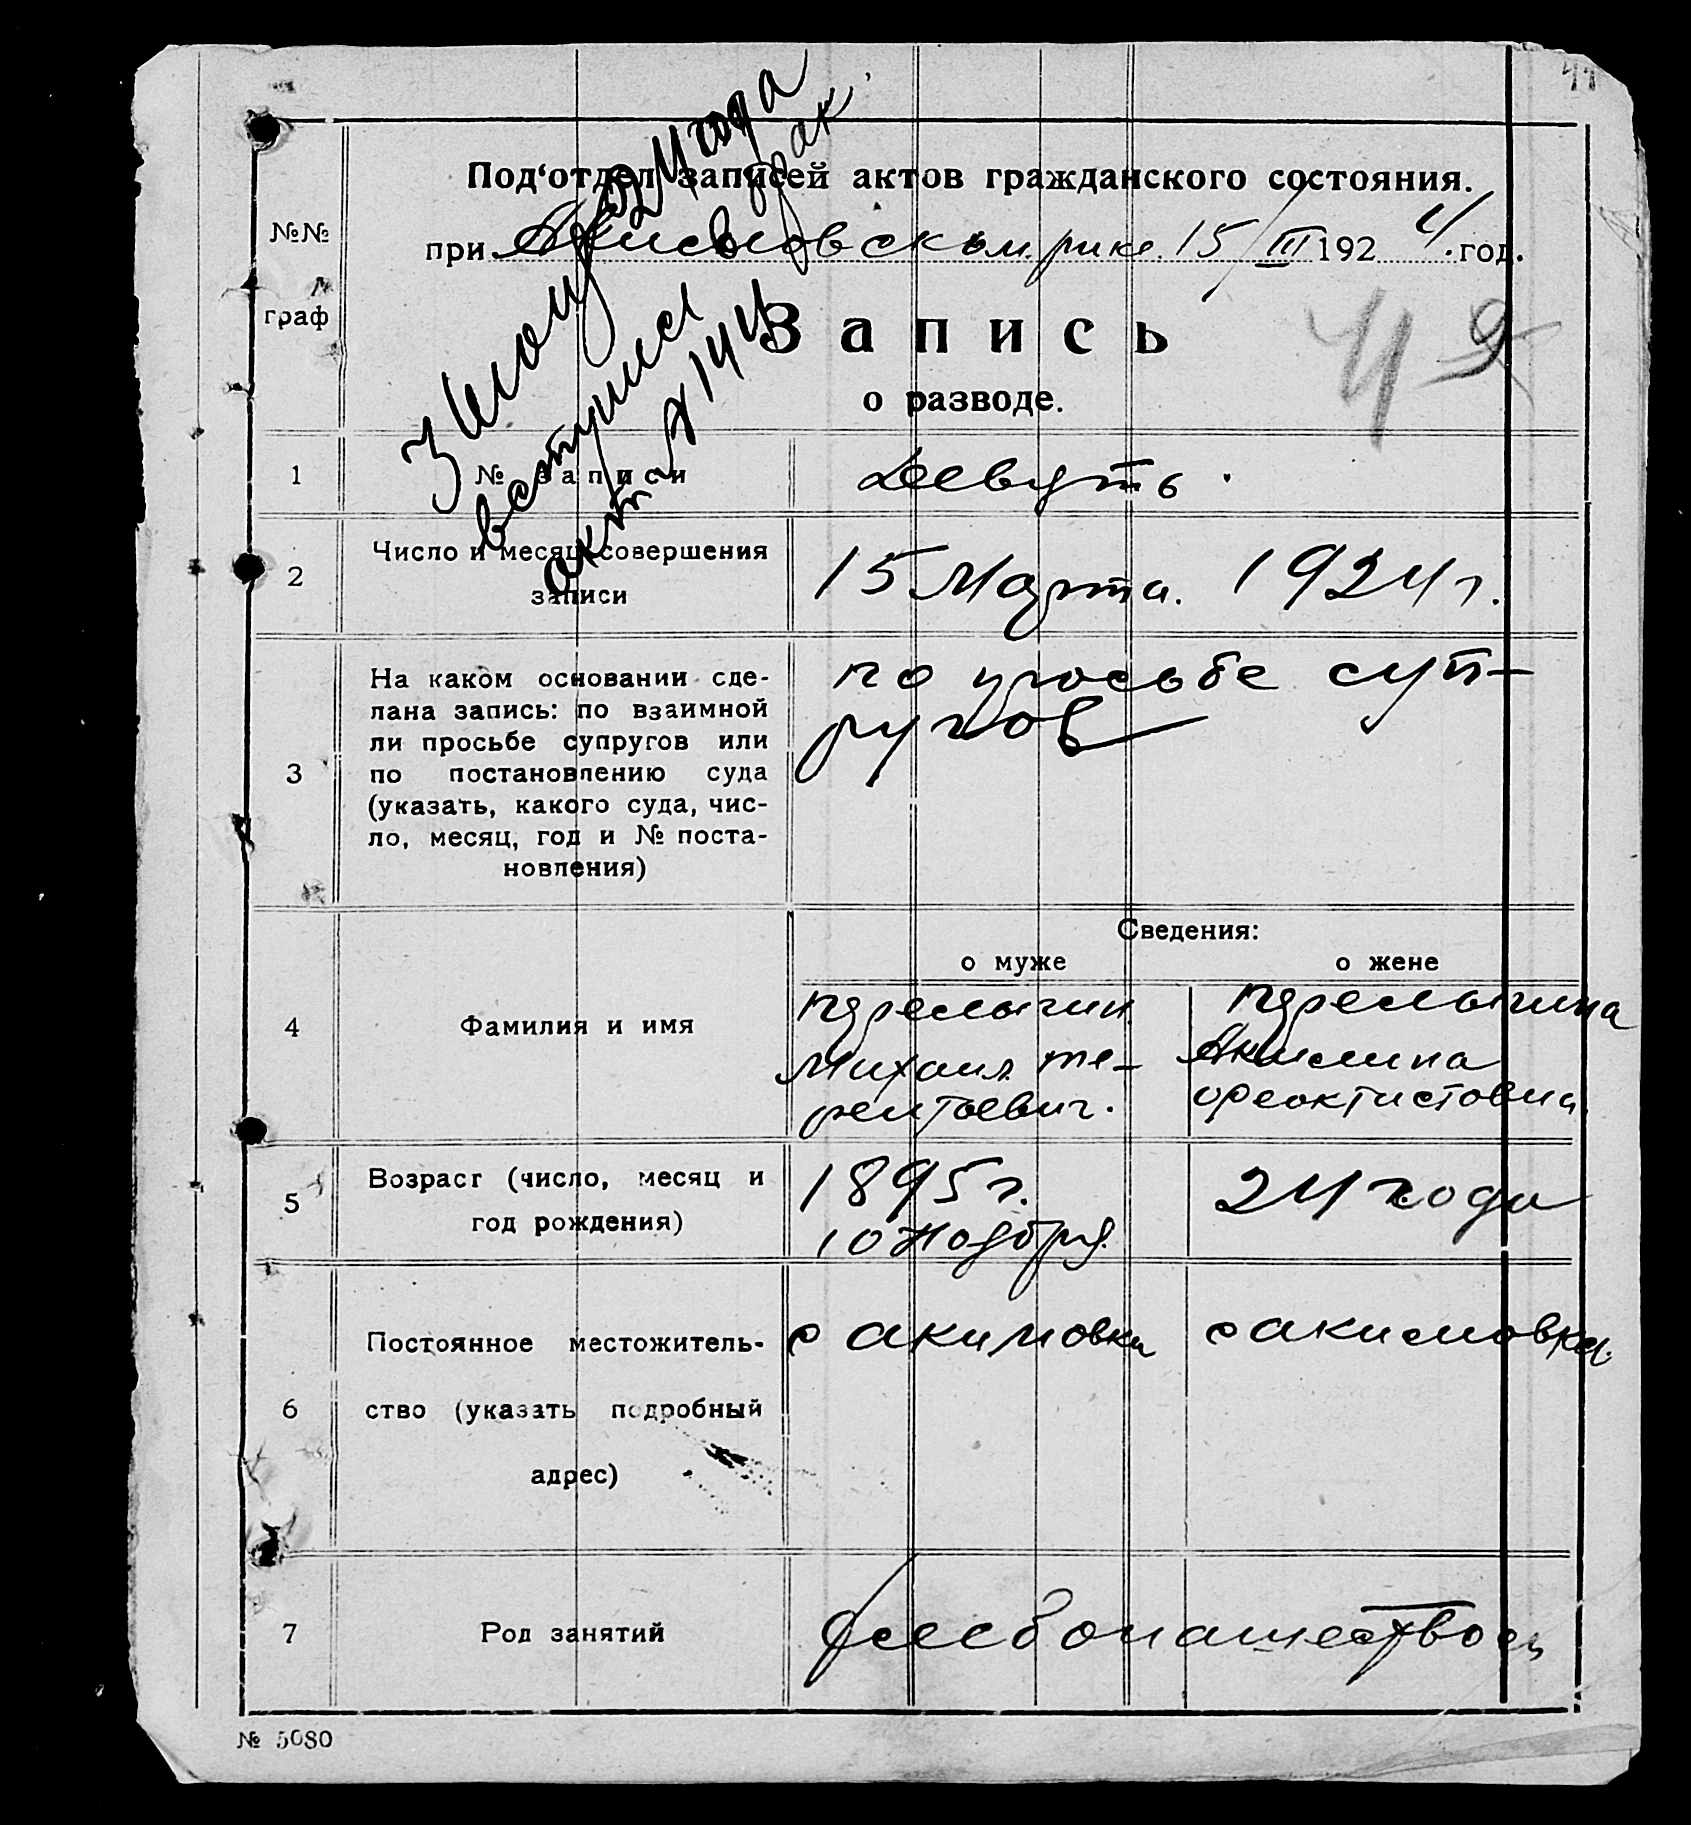 41
Под'отдел записей актов гражданского состояния.
при Акимовском рике 15/III 1924 год.
№№
граф
Запись
49
о разводе.
3 июля 1924 года
вступил брак
акт № 144
1 № записи Девять.
2 Число и месяц совершения
записи 15 Марта. 1924 г.
3 На каком основании сде-
лана запись: по взаимной
ли просьбе супругов или
по постановлению суда
(указать, какого суда, чис-
ло, месяц, год и № поста-
новления)
по просьбе суп-
ругов
Сведения:
о муже о жене
4 Фамилия и имя
Перелыгин
Михаил Те-
рентьевич.
Перелыгина
Акилина
Феоктистовна
5 Возраст (число, месяц и
год рождения)
1895 г.
10 Ноября
24 года
6 Постоянное местожитель-
ство (указать подробный
адрес)
с Акимовка с Акимовка.
7 Род занятий хлебопашество
№ 5080